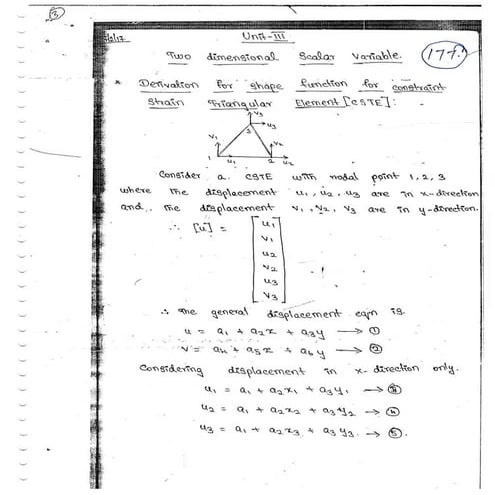 3
Unit-III
Two dimensional Scalar Variable.
* Derivation for shape function for constraint
Strain Triangular Element [CSTE]:
v3
3 u3
v1 v2
1 u1 2 u2
Consider a CSTE with nodal point 1, 2, 3
where the displacement u1, u2, u3 are in x-direction
and the displacement v1, v2, v3 are in y-direction.
∴ [u] = [u1
v1
u2
v2
u3
v3]
∴ The general displacement eqn is
u = a1 + a2x + a3y → ①
v = a4 + a5x + a6y → ②
Considering displacement in x-direction only.
u1 = a1 + a2x1 + a3y1 → ③
u2 = a1 + a2x2 + a3y2 → ④
u3 = a1 + a2x3 + a3y3. → ⑤.